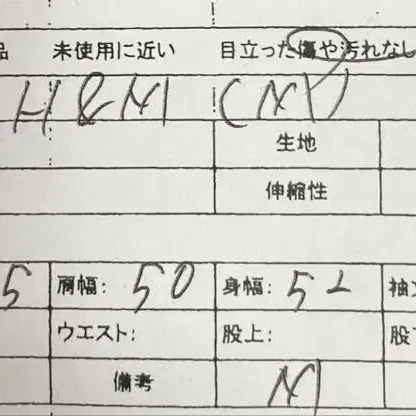 品 未使用に近い 目立った傷や汚れなし
H&M (M)
生地
伸縮性
5 肩幅: 50 身幅: 52 袖
ウエスト: 股上: 股
備考 M